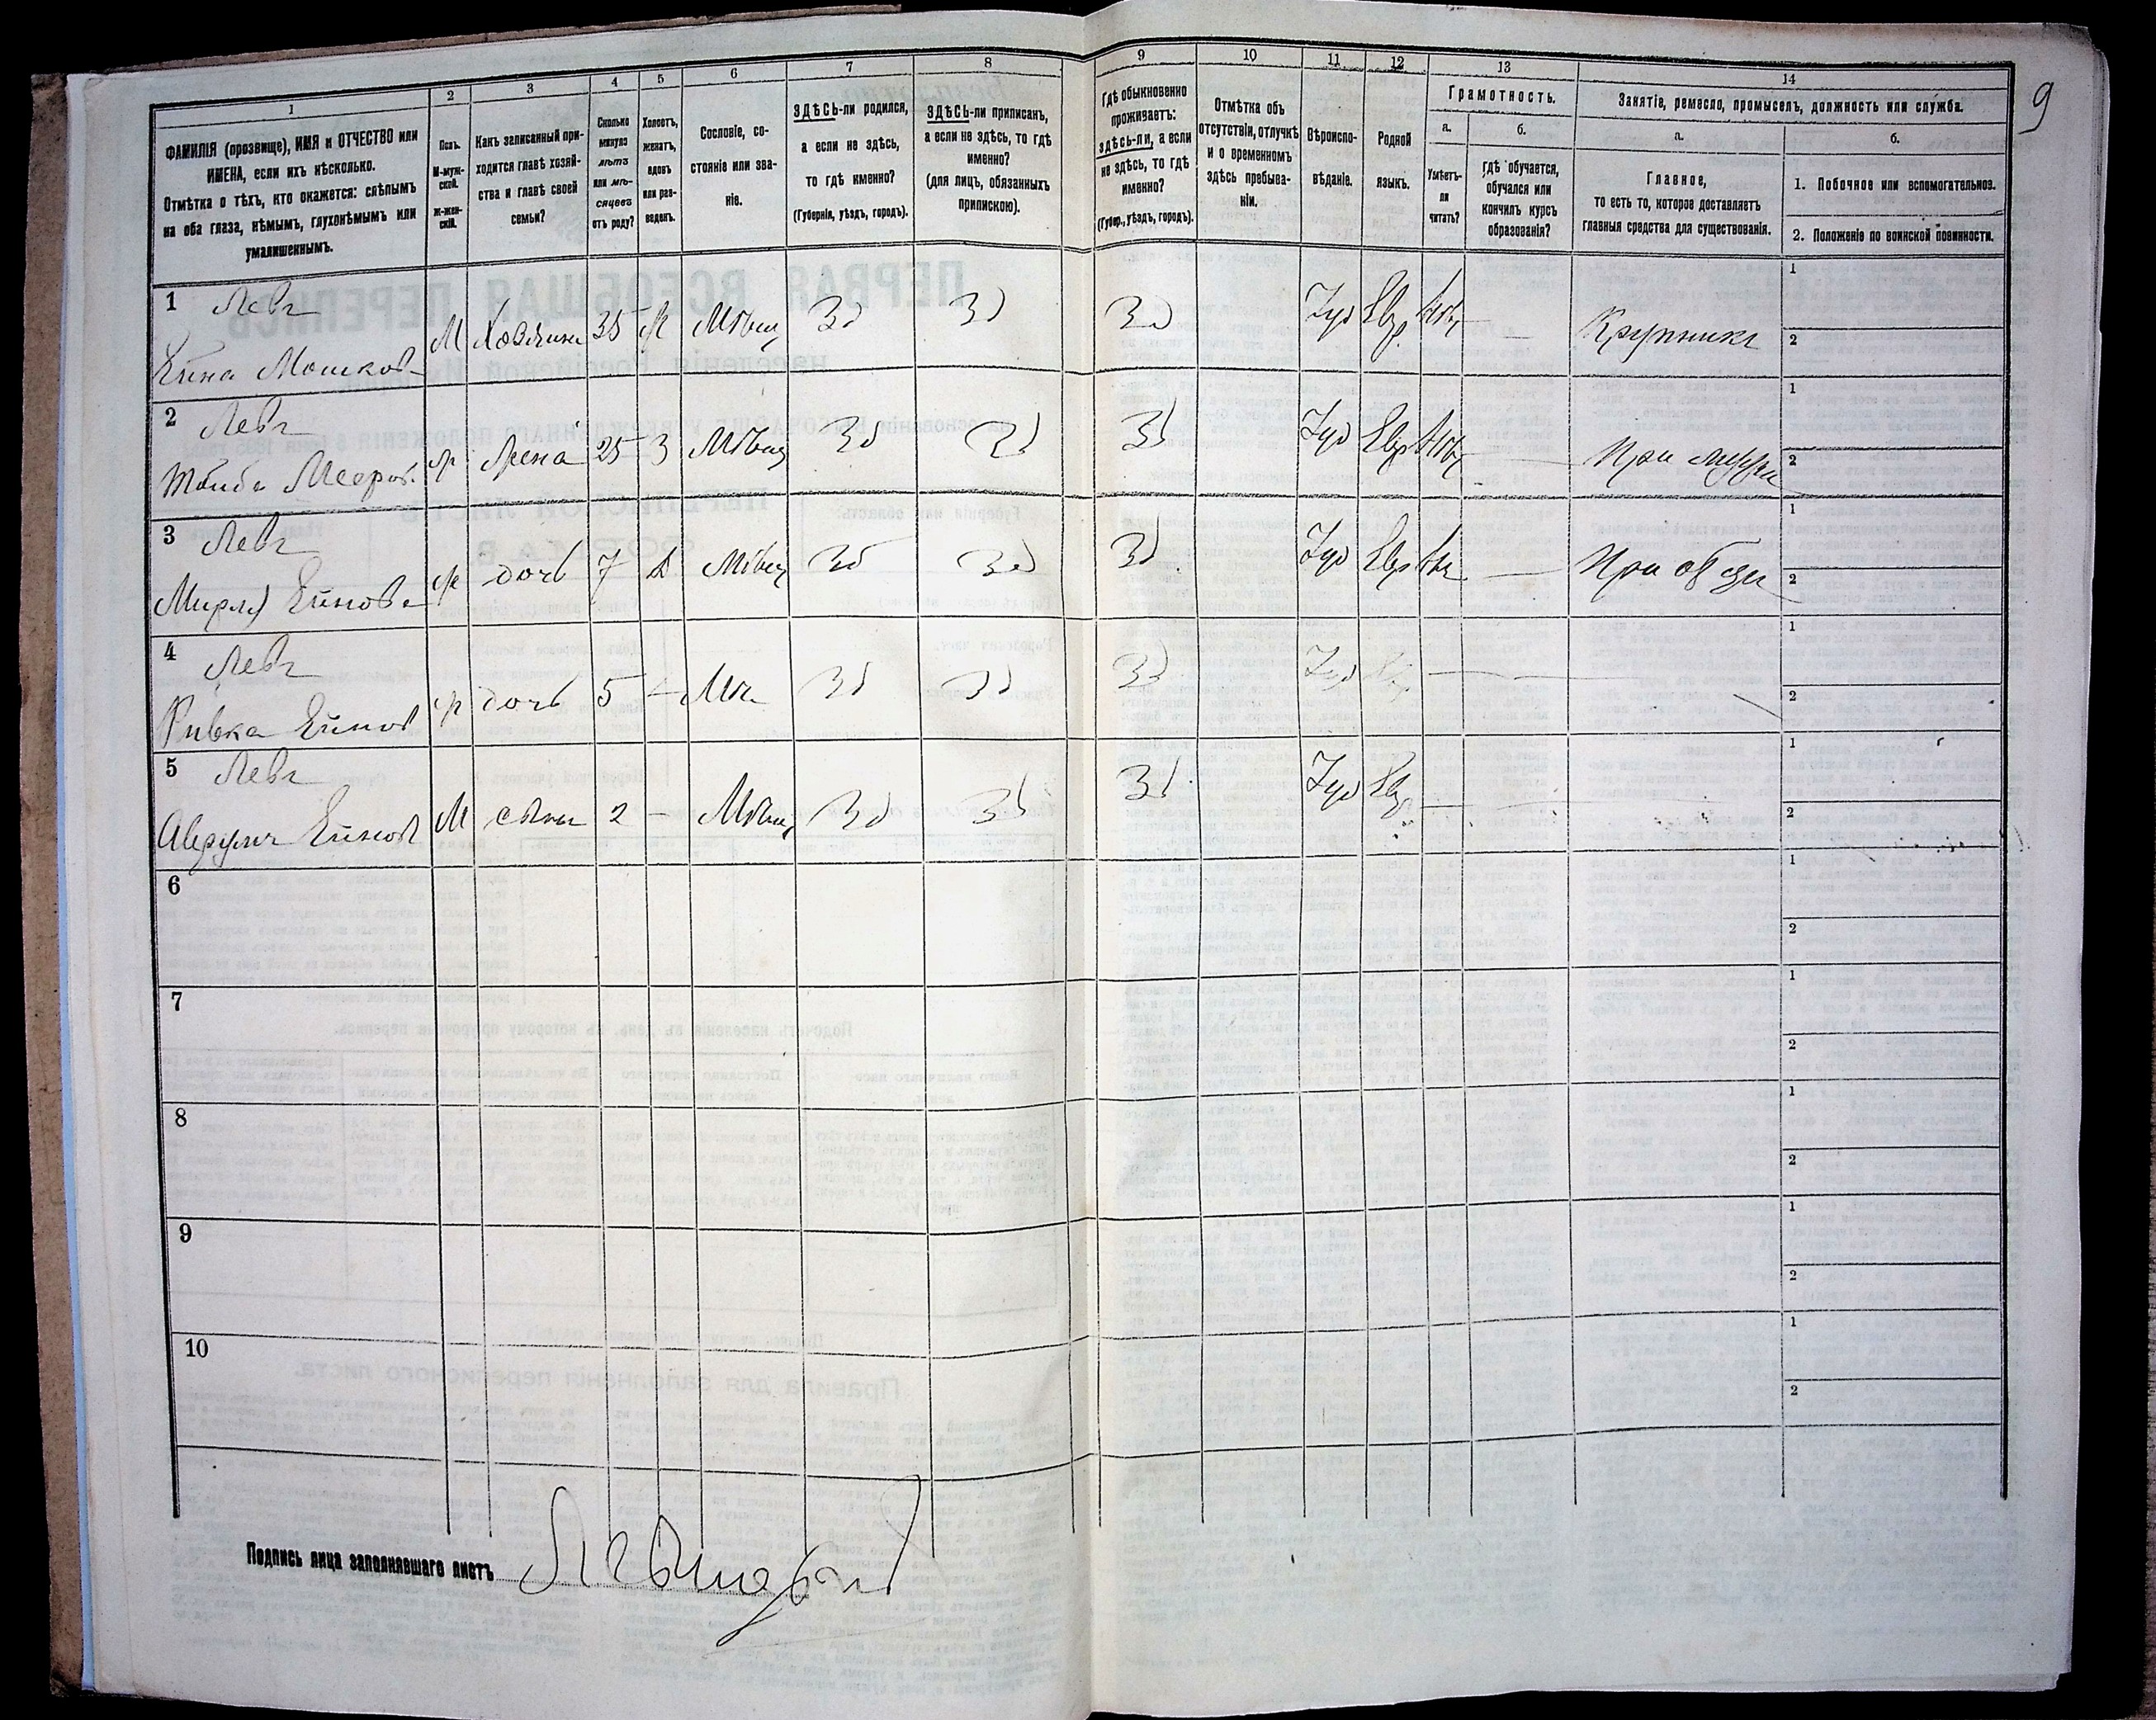 9
1
2
3
4
5
6
7
8
9
10
11
12
13
14
ФАМИЛІЯ (прозвище), ИМЯ и ОТЧЕСТВО или
ИМЕНА, если ихъ нѣсколько.
Отмѣтка о тѣхъ, кто окажется: слѣпымъ
на оба глаза, нѣмымъ, глухонѣмымъ или
умалишеннымъ.
Полъ.
М-муж-
ской.
ж-жен-
скій.
Какъ записанный при-
ходится главѣ хозяй-
ства и главѣ своей
семьи?
Сколько
минуло
лѣтъ
или мѣ-
сяцевъ
отъ роду?
Холостъ,
женатъ,
вдовъ
или раз-
веденъ.
Сословіе, со-
стояніе или зва-
ніе.
ЗДѢСЬ-ли родился,
а если не здѣсь,
то гдѣ именно?
(Губернія, уѣздъ, городъ).
ЗДѢСЬ-ли приписанъ,
а если не здѣсь, то гдѣ
именно?
(для лицъ, обязанныхъ
припискою).
Гдѣ обыкновенно
проживаетъ:
здѣсь-ли, а если
не здѣсь, то гдѣ
именно?
(Губер., уѣздъ, городъ).
Отмѣтка объ
отсутствіи, отлучкѣ
и о временномъ
здѣсь пребыва-
ніи.
Вѣроиспо-
вѣданіе.
Родной
языкъ.
Грамотность.
а.
Умѣетъ-
ли
читать?
б.
Гдѣ обучается,
обучался или
кончилъ курсъ
образованія?
Занятіе, ремесло, промыселъ, должность или служба.
а.
Главное,
то есть то, которое доставляетъ
главныя средства для существованія.
б.
1. Побочное или вспомогательное.
2. Положеніе по воинской повинности.
1 Левъ
Ейна Мошков М Хозяинъ 35 Ж Мѣщ Зд Зд Зд Іуд Евр — Крупникъ 1 2
2 Левъ
Тайба Мееров. ж жена 25 З Мѣщ Зд Зд Зд Іуд Евр — При мужѣ 1 2
3 Левъ
Мирля Ейнова ж дочь 7 Д Мѣщ Зд Зд Зд Іуд Евр — При отцѣ 1 2
4 Левъ
Ривка Ейнов ж дочь 5 — Зд Зд Зд Іуд Евр — 1 2
5 Левъ
Ейнов М сынъ 2 — Мѣщ Зд Зд Зд Іуд Евр — 1 2
6 1 2
7 1 2
8 1 2
9 1 2
10 1 2
Подпись лица заполнявшаго листъ